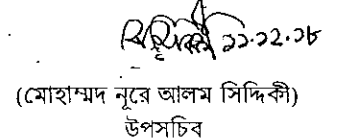 ২১.১২.১৮
(মোহাম্মদ নূরে আলম সিদ্দিকী)
উপসচিব